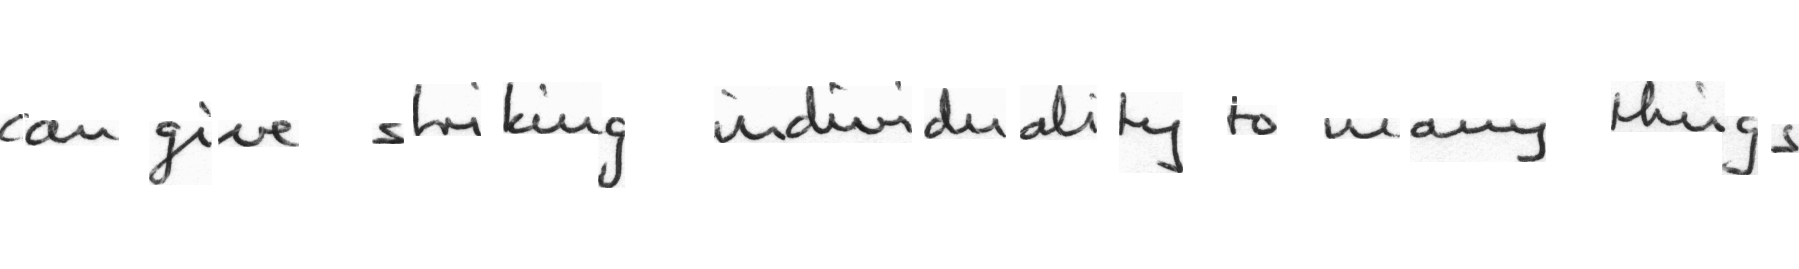 can give striking individuality to many things